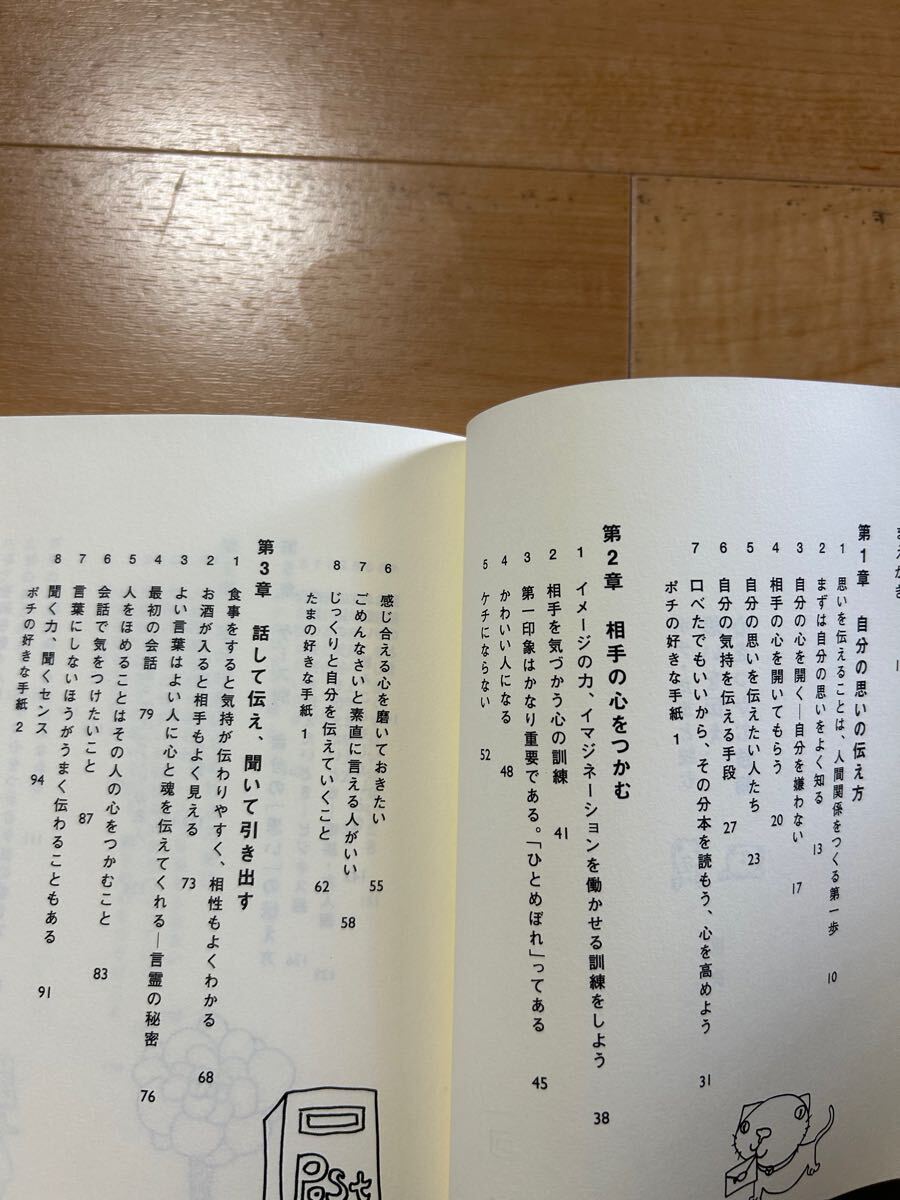 まえがき 1
第1章 自分の思いの伝え方
1 思いを伝えることは、人間関係をつくる第一歩 10
2 まずは自分の思いをよく知る 13
3 自分の心を開く―自分を嫌わない 17
4 相手の心を開いてもらう 20
5 自分の思いを伝えたい人たち 23
6 自分の気持を伝える手段 27
7 口べたでもいいから、その分本を読もう、心を高めよう 31
ポチの好きな手紙 1
第2章 相手の心をつかむ
1 イメージの力、イマジネーションを働かせる訓練をしよう 38
2 相手を気づかう心の訓練 41
3 第一印象はかなり重要である。「ひとめぼれ」ってある 45
4 かわいい人になる 48
5 ケチにならない 52
6 感じ合える心を磨いておきたい 55
7 ごめんなさいと素直に言える人がいい 58
8 じっくりと自分を伝えていくこと 62
たまの好きな手紙 1
第3章 話して伝え、聞いて引き出す
1 食事をすると気持が伝わりやすく、相性もよくわかる 68
2 お酒が入ると相手もよく見える 73
3 よい言葉はよい人に心と魂を伝えてくれる―言霊の秘密 76
4 最初の会話 79
5 人をほめることはその人の心をつかむこと 83
6 会話で気をつけたいこと 87
7 言葉にしないほうがうまく伝わることもある 91
8 聞く力、聞くセンス 94
ポチの好きな手紙 2
Post